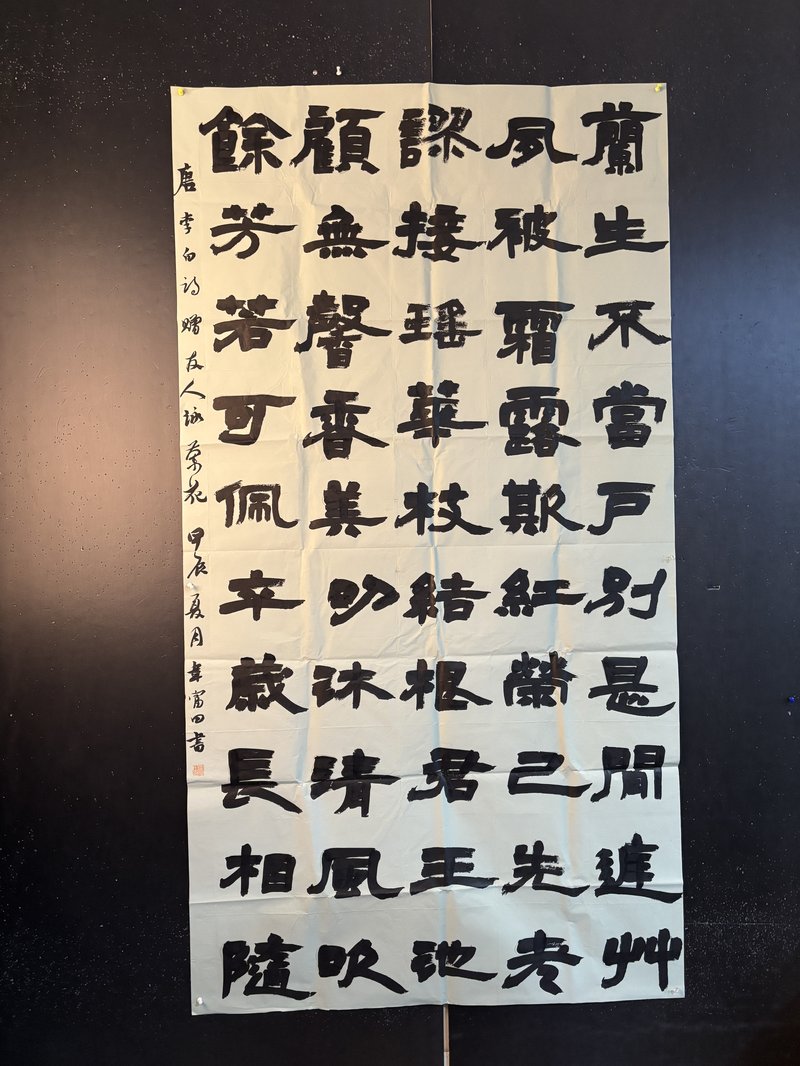 蘭生不當戶別是閒庭艸
夙被霜露欺紅榮已先老
謬接瑤華枝結根君王池
顧無馨香美叨沐清風吹
餘芳若可佩卒歲長相隨
唐李白詩贈友人詠蘭花甲辰夏月富田書